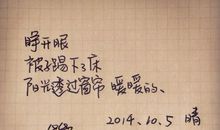 睁开眼
被子踢下了床
阳光透过窗帘 暖暖的、
2014.10.5 晴